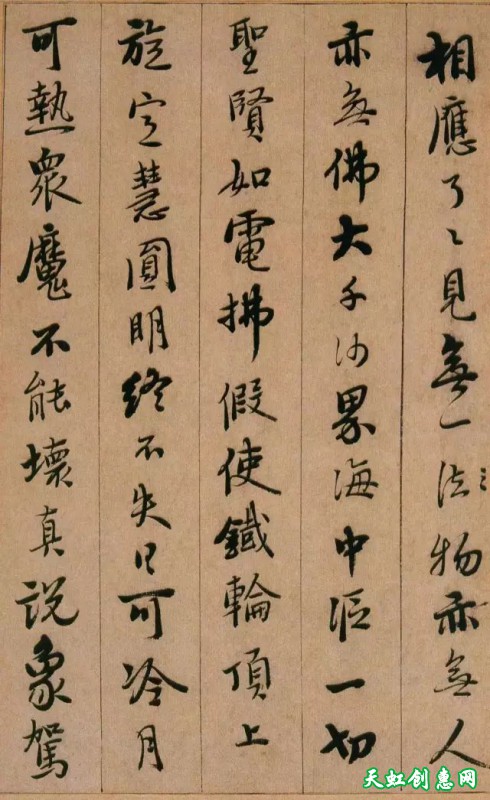 相應了〻見無一法物亦無人
亦無佛大千沙界海中漚一切
聖賢如電拂假使鐵輪頂上
旋定慧圓明終不失日可冷月
可熱衆魔不能壞真説象駕
天虹创惠网